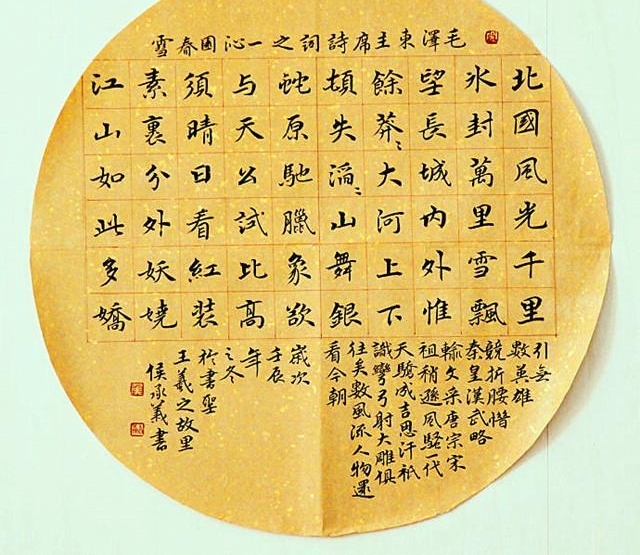 毛澤東主席詩詞之一沁園春雪
北國風光千里
氷封萬里雪飄
望長城内外惟
餘莽〻大河上下
頓失滔〻山舞銀
蛇原馳臘象欲
与天公試比高
須晴日看紅装
素裹分外妖嬈
江山如此多嬌
引無
數英雄
競折腰惜
秦皇漢武略
輸文采唐宗宋
祖稍遜風騷一代
天驕成吉思汗衹
識彎弓射大雕俱
往矣數風流人物還
看今朝
歲次
壬辰
年
之冬
於書聖
王羲之故里
侯承義書